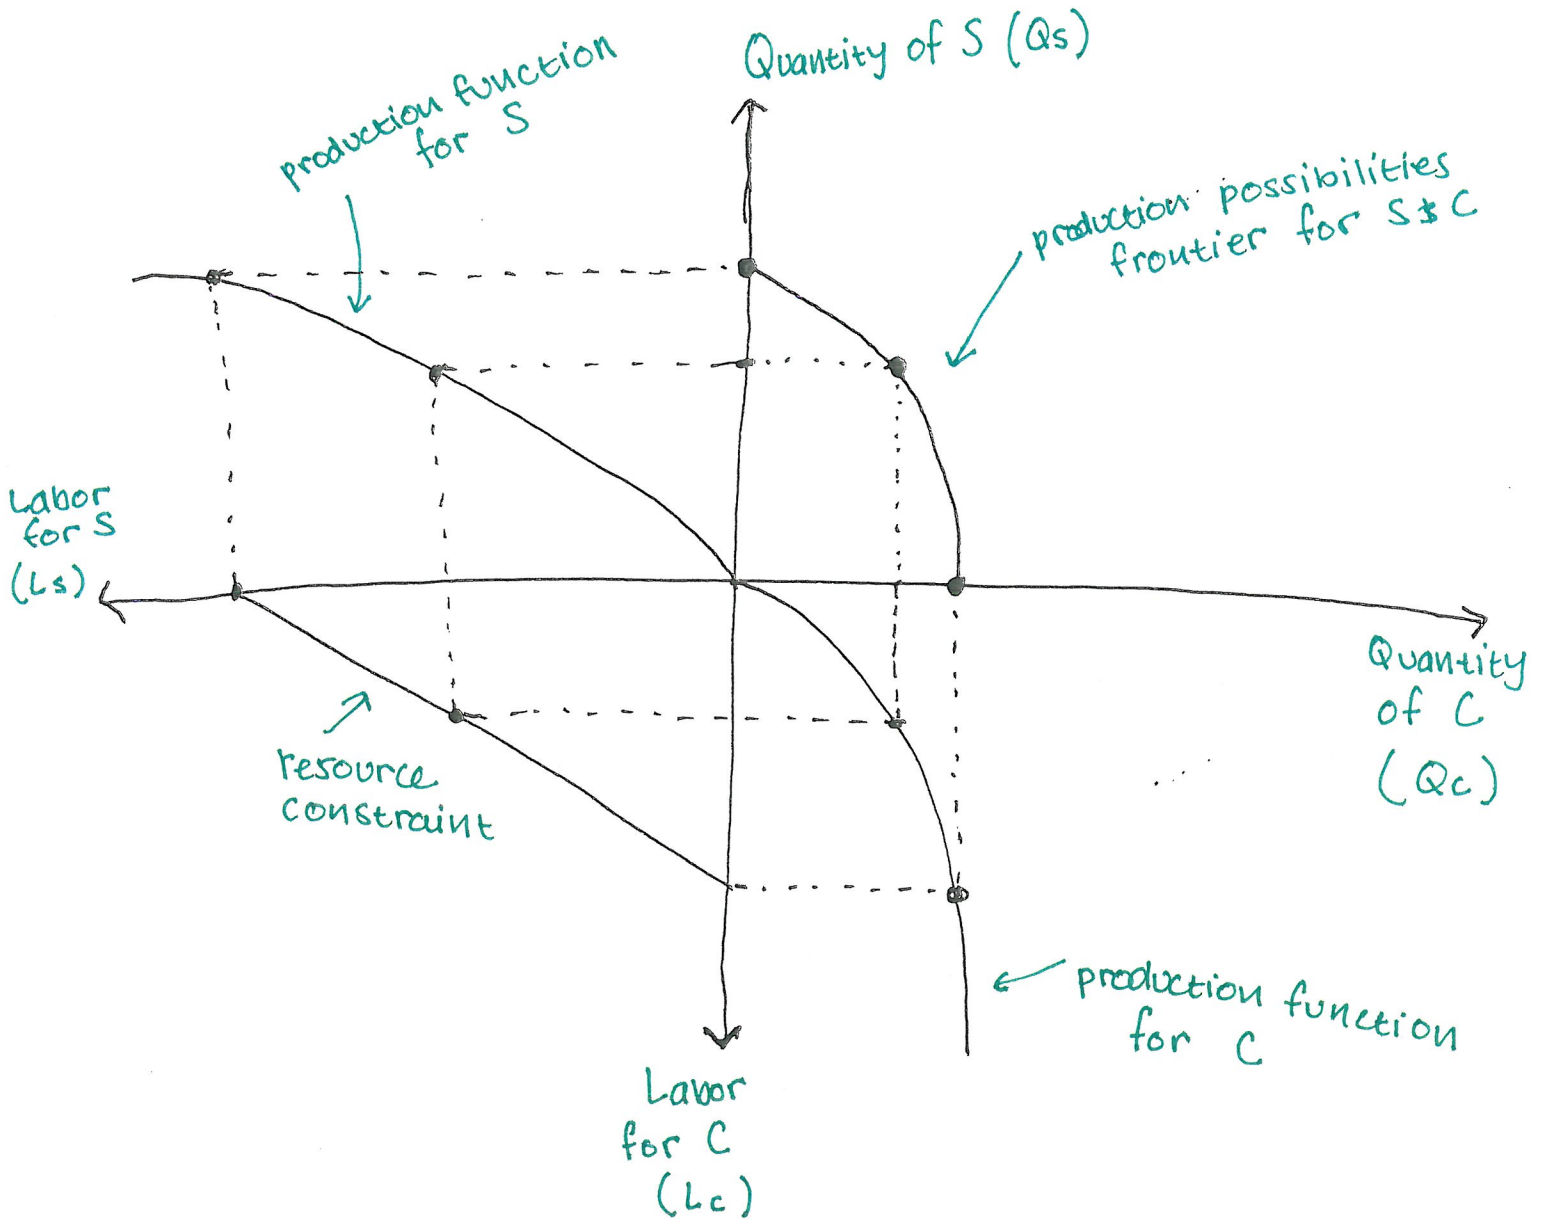 Quantity of S (Qs)
production function
for S
production possibilities
frontier for S & C
Labor
for S
(Ls)
Quantity
of C
(Qc)
resource
constraint
production function
for C
Labor
for C
(Lc)